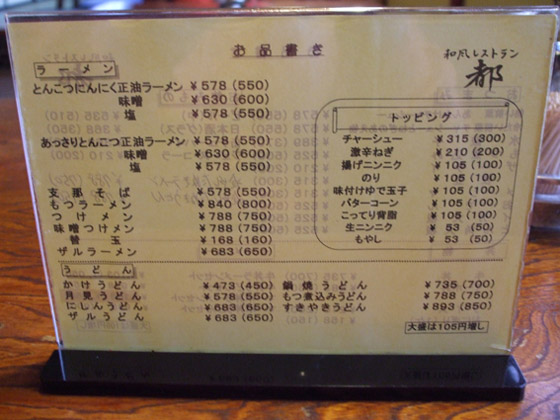 お品書き
和風レストラン
都
ラーメン
とんこつにんにく正油ラーメン ￥578(550)
味噌 ￥630(600)
塩 ￥578(550)
あっさりとんこつ正油ラーメン ￥578(550)
味噌 ￥630(600)
塩 ￥578(550)
支那そば ￥578(550)
もつラーメン ￥840(800)
つけメン ￥788(750)
味噌つけメン ￥788(750)
替玉 ￥168(160)
ザルラーメン ￥683(650)
トッピング
チャーシュー ￥315(300)
激辛ねぎ ￥210(200)
揚げニンニク ￥105(100)
のり ￥105(100)
味付けゆで玉子 ￥105(100)
バターコーン ￥105(100)
こってり背脂 ￥105(100)
生ニンニク ￥53(50)
もやし ￥53(50)
うどん
かけうどん ￥473(450)
月見うどん ￥578(550)
にしんうどん ￥683(650)
ザルうどん ￥683(650)
鍋焼うどん ￥735(700)
もつ煮込みうどん ￥788(750)
すきやきうどん ￥893(850)
大盛は105円増し